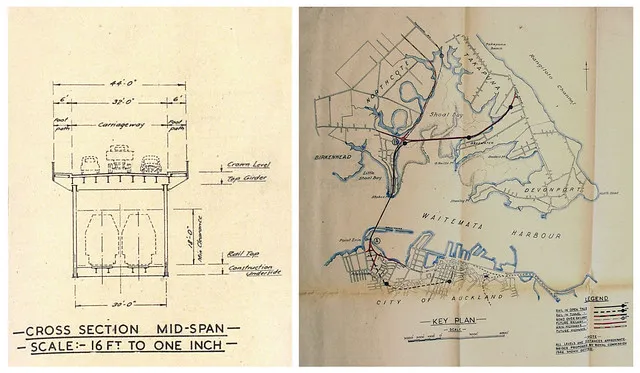 44'-0"
6'
32'-0"
6'
Foot path
Carriageway
Foot path
Crown Level
Top Girder
18'-0"
Min Clearance
Rail Top
Construction
Underside
30'-0"
CROSS SECTION MID-SPAN
SCALE:- 16 FT TO ONE INCH
NORTHCOTE
TAKAPUNA
Rangitoto Channel
Shoal Bay
BIRKENHEAD
Little
Shoal Bay
DEVONPORT
WAITEMATA
HARBOUR
CITY OF AUCKLAND
KEY PLAN
SCALE
LEGEND
NOTE